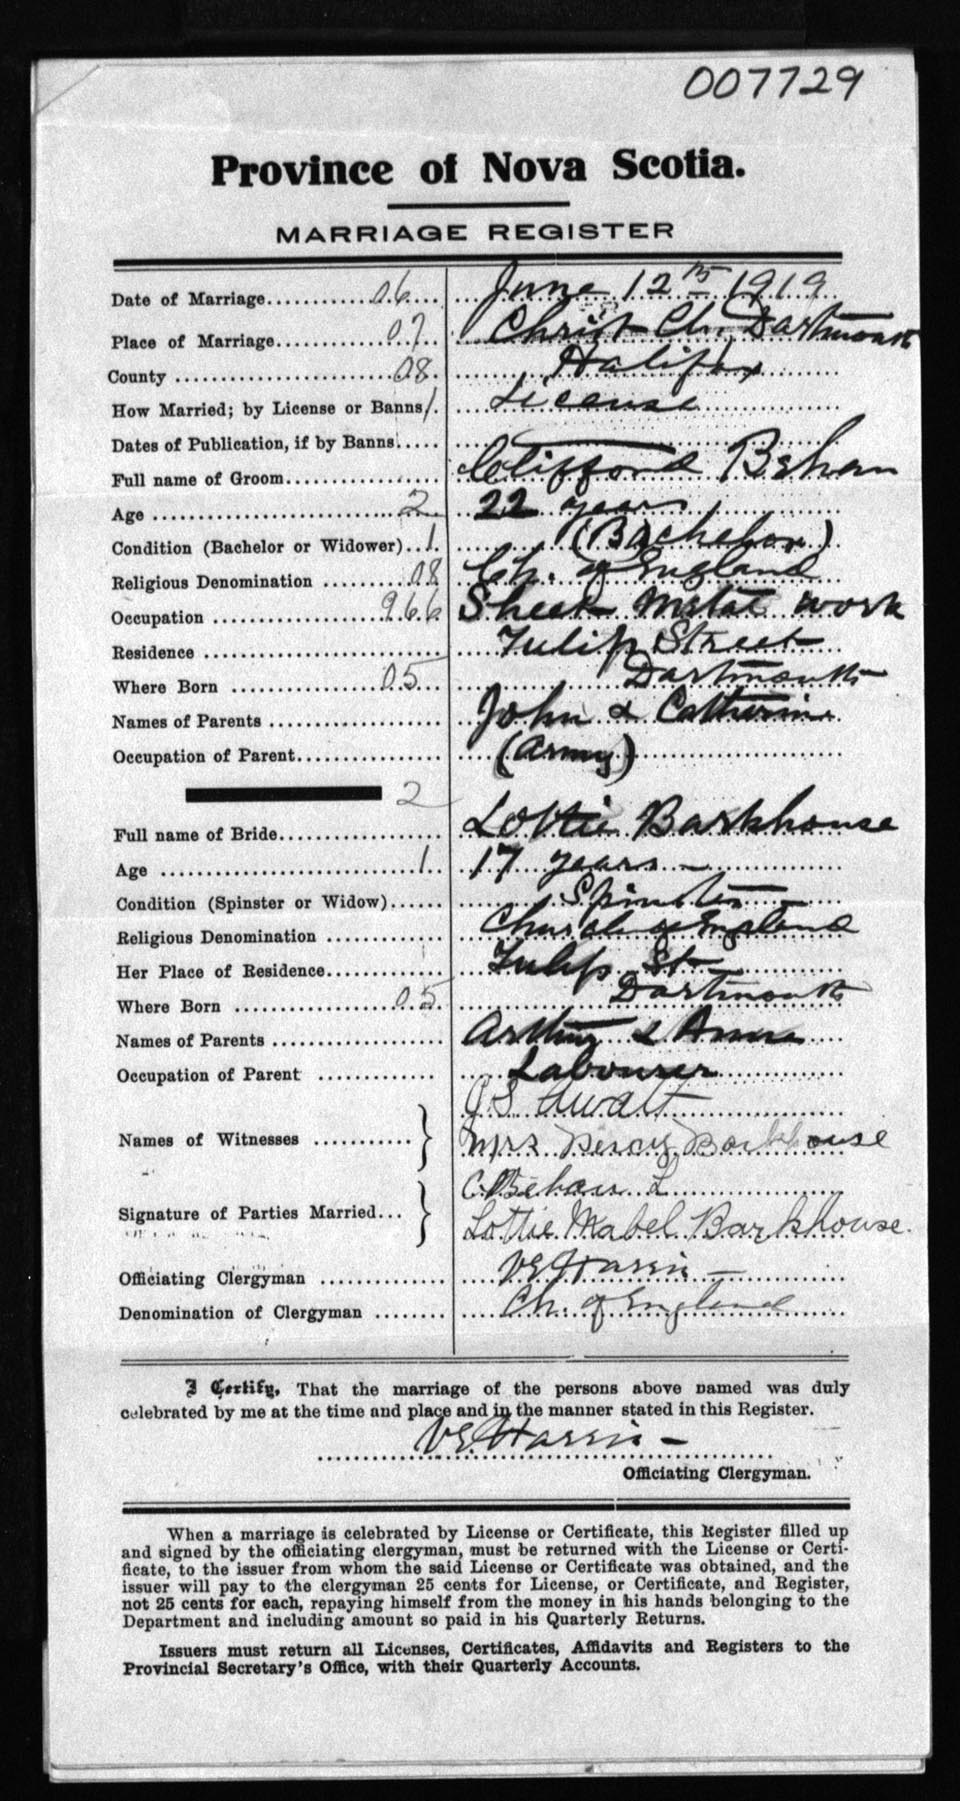 007729
Province of Nova Scotia.
MARRIAGE REGISTER
Date of Marriage 06 June 12th 1919
Place of Marriage 07 Christ Ch. Dartmouth
County 08 Halifax
How Married; by License or Banns 1 License
Dates of Publication, if by Banns
Full name of Groom Clifford Behan
Age 2 22 years
Condition (Bachelor or Widower) 1 (Bachelor)
Religious Denomination 08 Ch. of England
Occupation 966 Sheet Metal work
Residence Tulip Street
Where Born 05 Dartmouth
Names of Parents John & Catherine
Occupation of Parent (Army)
2
Full name of Bride Lottie Barkhouse
Age 1 17 years -
Condition (Spinster or Widow) Spinster
Religious Denomination Church of England
Her Place of Residence Tulip St
Where Born 05 Dartmouth
Names of Parents Arthur & Annie
Occupation of Parent Labourer
J S
Names of Witnesses Mrs Percy Barkhouse
C Behan
Signature of Parties Married Lottie Mabel Barkhouse.
Officiating Clergyman V E Harris -
Denomination of Clergyman Ch. of England
I Certify, That the marriage of the persons above named was duly
celebrated by me at the time and place and in the manner stated in this Register.
V E Harris -
Officiating Clergyman.
When a marriage is celebrated by License or Certificate, this Register filled up
and signed by the officiating clergyman, must be returned with the License or Certi-
ficate, to the issuer from whom the said License or Certificate was obtained, and the
issuer will pay to the clergyman 25 cents for License, or Certificate, and Register,
not 25 cents for each, repaying himself from the money in his hands belonging to the
Department and including amount so paid in his Quarterly Returns.
Issuers must return all Licenses, Certificates, Affidavits and Registers to the
Provincial Secretary's Office, with their Quarterly Accounts.